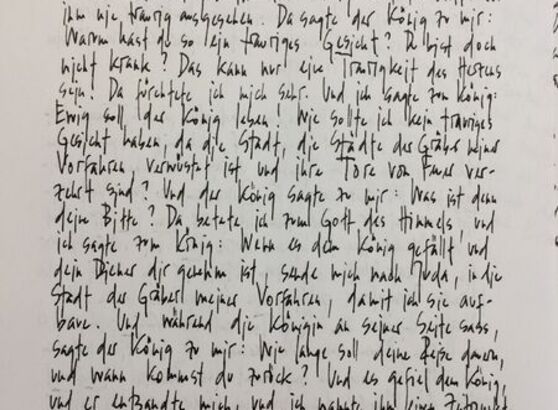 ihm nie traurig ausgesehen. Da sagte der König zu mir:
Warum hast du so ein trauriges Gesicht? Du bist doch
nicht krank? Das kann nur eine Traurigkeit des Herzens
sein! Da fürchtete ich mich sehr. Und ich sagte zum König:
Ewig soll der König leben! Wie sollte ich kein trauriges
Gesicht haben, da die Stadt, die Stätte der Gräber meiner
Vorfahren, verwüstet ist und ihre Tore vom Feuer ver-
zehrt sind? Und der König sagte zu mir: Was ist denn
deine Bitte? Da betete ich zum Gott des Himmels, und
ich sagte zum König: Wenn es dem König gefällt und
dein Diener dir genehm ist, sende mich nach Juda, in die
Stadt der Gräber meiner Vorfahren, damit ich sie auf-
baue. Und während die Königin an seiner Seite sass,
sagte der König zu mir: Wie lange soll deine Reise dauern,
und wann kommst du zurück? Und es gefiel dem König,
und er entsandte mich, und ich nannte ihm eine Zeit